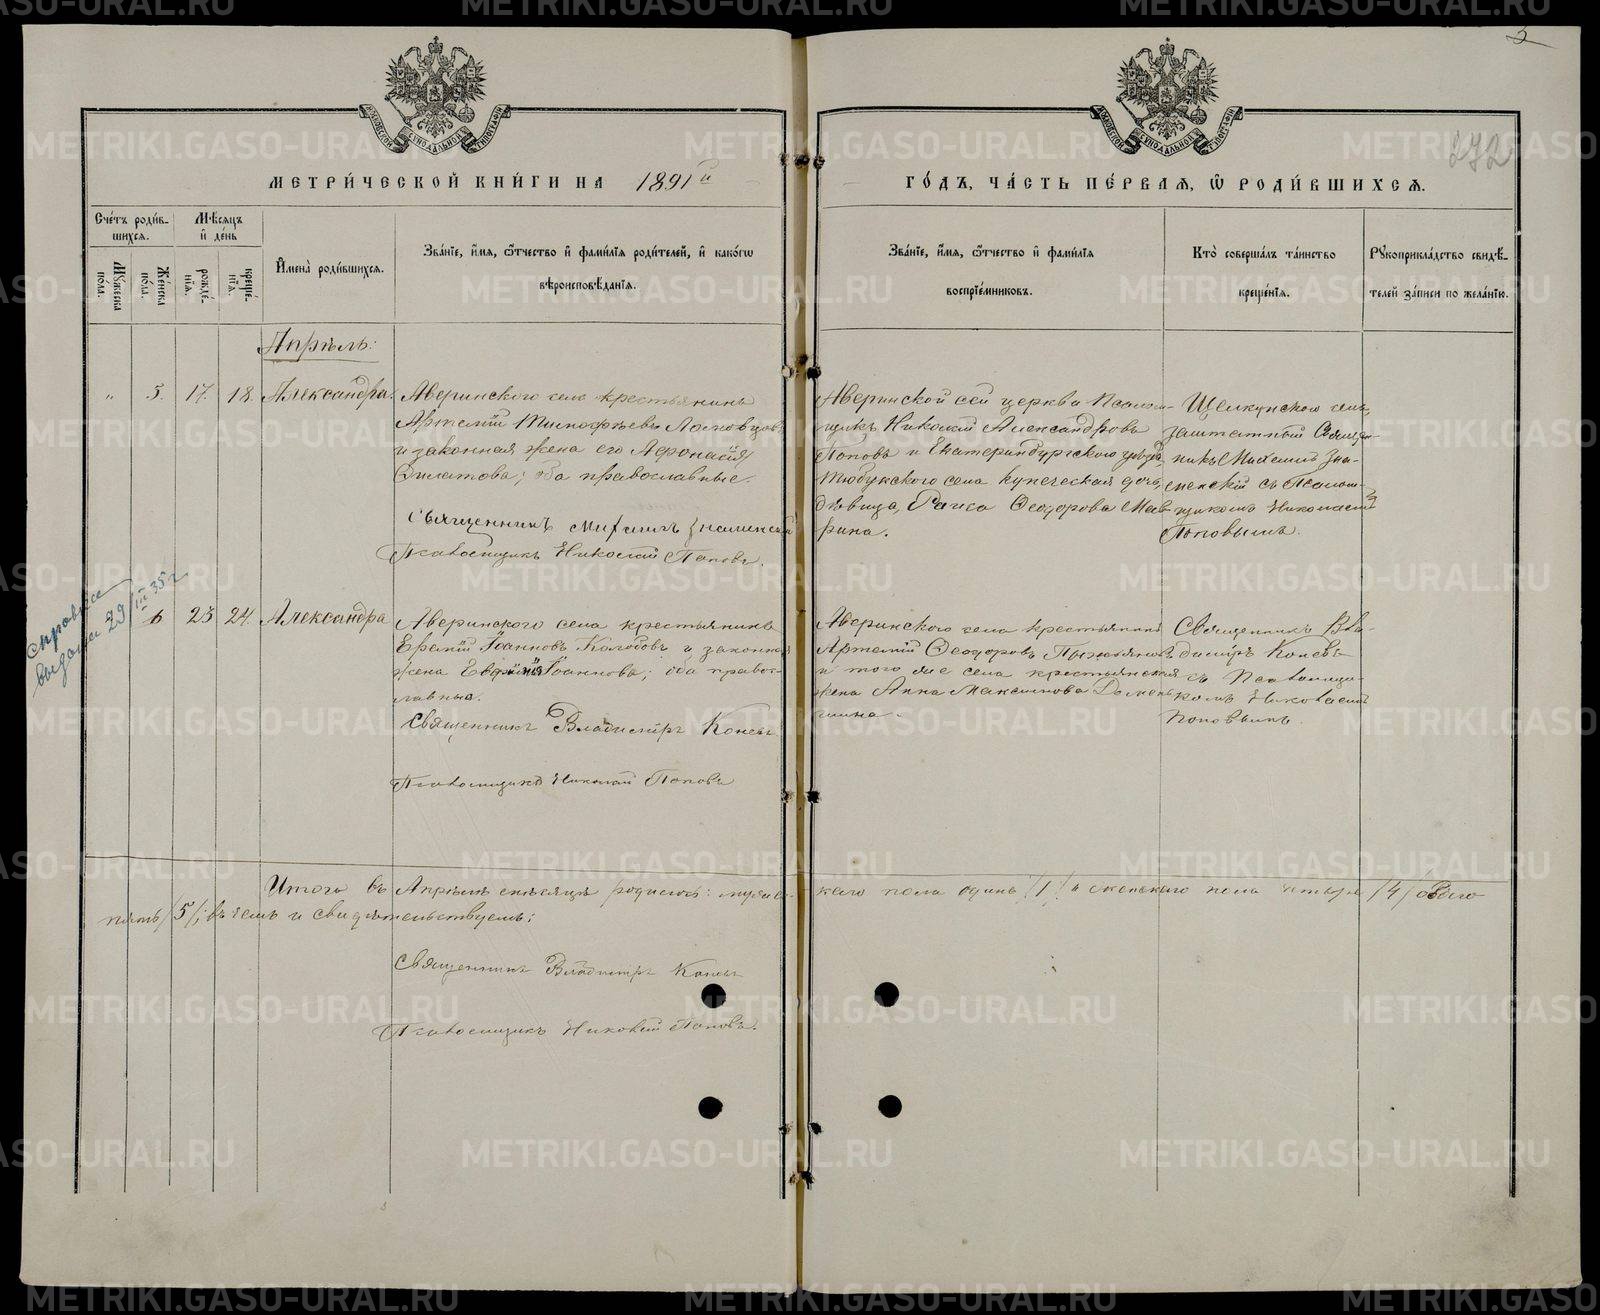 5
272
МЕТРИ́ЧЕСКОЙ КНИ́ГИ НА 1891й
ГО́ДЪ, ЧА́СТЬ ПЕ́РВАЯ, Ѿ РОДИ́ВШИХСЯ.
Сче́тъ роди́в-
шихся.
Мѣ́сяцъ
и́ де́нь
Му́жеска
по́ла.
Же́нска
по́ла.
рожде́-
нїя.
креще́-
нїя.
И́мена̀ роди́вшихся.
Зва́нїе, и́мя, ѻ҆́тчество и́ фами́лїя роди́телей, и́ како́гѡ
вѣроисповѣ́данїя.
Зва́нїе, и́мя, ѻ҆́тчество и́ фами́лїя
воспрїе́мниковъ.
Кто̀ соверша́лъ та́инство
креще́нїя.
Рукоприкла́дство свидѣ́-
телей за́писи по жела́нїю.
Апрѣль:
„ 5. 17. 18. Александра.
Аверинскаго села крестьянинъ
Артемій
и законная жена его
Филатова; оба православные.
Священникъ Михаилъ Знаменскій
Псаломщикъ Николай Поповъ.
Аверинской сей церкви Псалом-
щикъ Николай Александровъ
Поповъ и Екатеринбургскаго уѣзда,
Тюбукскаго села купеческая дочь
дѣвица, Раиса Ѳеодорова Мав-
рина.
Щелкунскаго села,
заштатный Священ-
никъ Михаилъ Зна-
менскій съ Псалом-
щикомъ Николаемъ
Поповымъ.
справка
выдана 29/III 35 г
6 23 24. Александра
Аверинскаго села крестьянинъ
Іоанновъ и законная
жена Іоаннова; оба право-
славные.
Священникъ Владиміръ Коневъ
Псаломщикъ Николай Поповъ
Аверинскаго села крестьянинъ
Артемій Ѳеодоровъ
и того же села крестьянская
жена Анна Максимова
Священникъ Вла-
диміръ Коневъ
съ Псаломщи-
комъ Николаемъ
Поповымъ.
Итого въ Апрѣлѣ мѣсяцѣ родилось: мужес-
каго пола одинъ /1/ и женскаго пола четыре /4/ всего
пять /5/; въ чемъ и свидѣтельствуемъ:
Священникъ Владиміръ Коневъ
Псаломщикъ Николай Поповъ.
METRIKI.GASO-URAL.RU